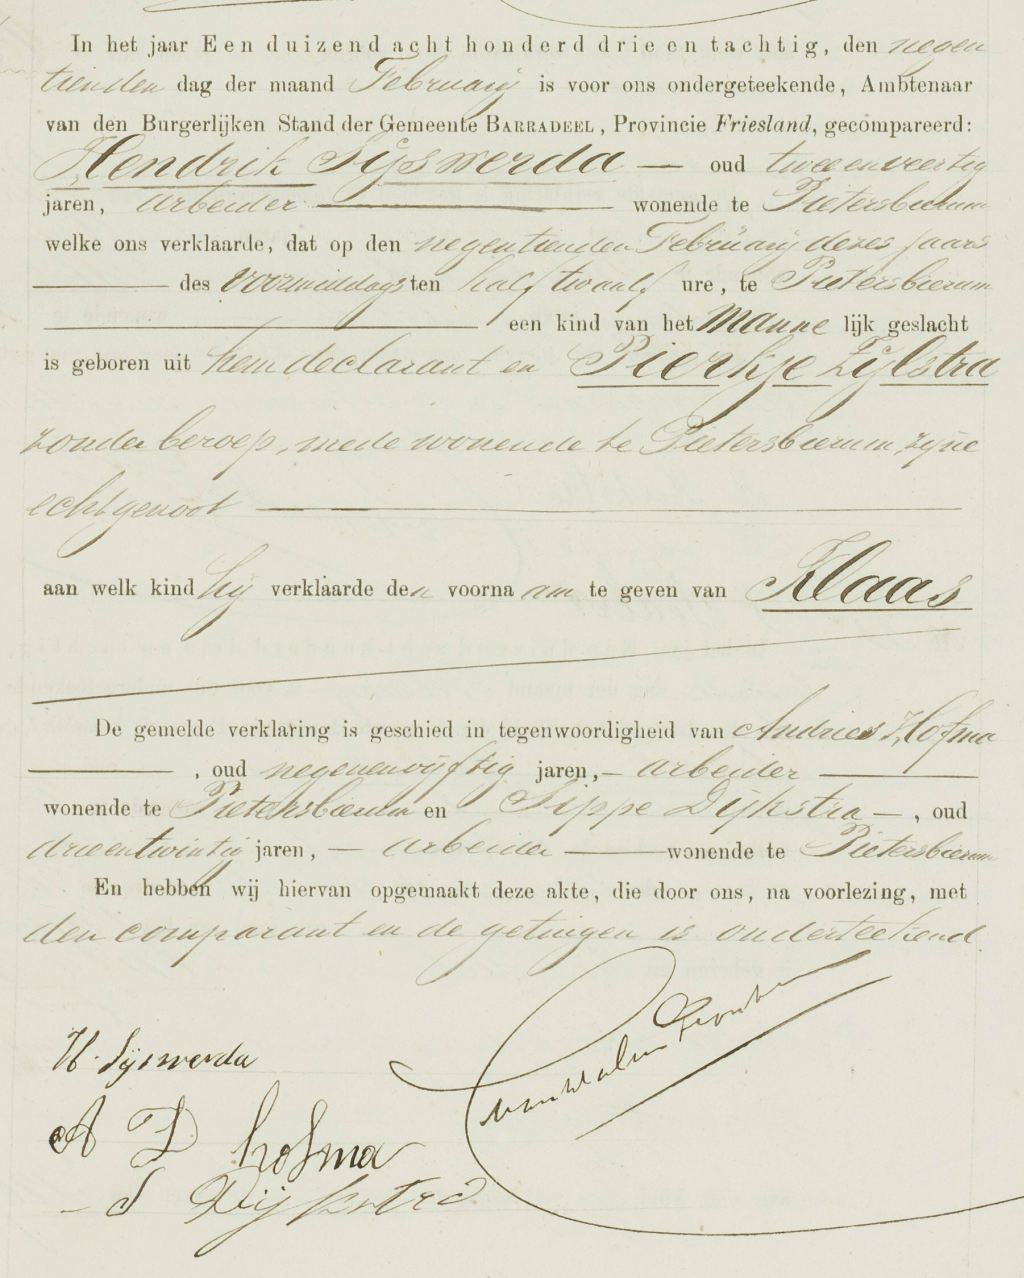 In het jaar Een duizend acht honderd drie en tachtig, den negen
tienden dag der maand Februarij is voor ons ondergeteekende, Ambtenaar
van den Burgerlijken Stand der Gemeente BARRADEEL, Provincie Friesland, gecompareerd:
Hendrik Sijswerda — oud twee en veertig
jaren, arbeider — wonende te Pietersbierum
welke ons verklaarde, dat op den negentienden Februarij dezes jaars
— des voormiddags ten half twaalf ure, te Pietersbierum
— een kind van het manne lijk geslacht
is geboren uit hem declarant en Pierkje Zijlstra
zonder beroep, mede wonende te Pietersbierum, zijne
echtgenoot —
aan welk kind hij verklaarde den voornaam te geven van Klaas
De gemelde verklaring is geschied in tegenwoordigheid van Andries Hofma
— , oud negenenvijftig jaren, — arbeider —
wonende te Pietersbierum en Sippe Dijkstra — , oud
drieentwintig jaren, — arbeider — wonende te Pietersbierum
En hebben wij hiervan opgemaakt deze akte, die door ons, na voorlezing, met
den comparant en de getuigen is onderteekend.
H. Sijswerda
A D hofma
S Dijkstra